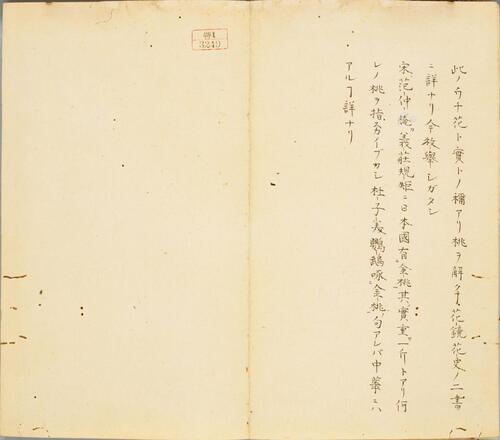 此ノウチ花ト實トノ稱アリ桃ヲ解クヿ花鏡花史ノ二書
ニ詳ナリ今枚擧シガタシ
宋范仲淹義莊規矩ニ日本國有金桃其實重一斤トアリ何
レノ桃ヲ指スカイブカシ杜子美鸚鵡啄金桃ノ句アレバ中華ニハ
アルヿ詳ナリ
特1
3249